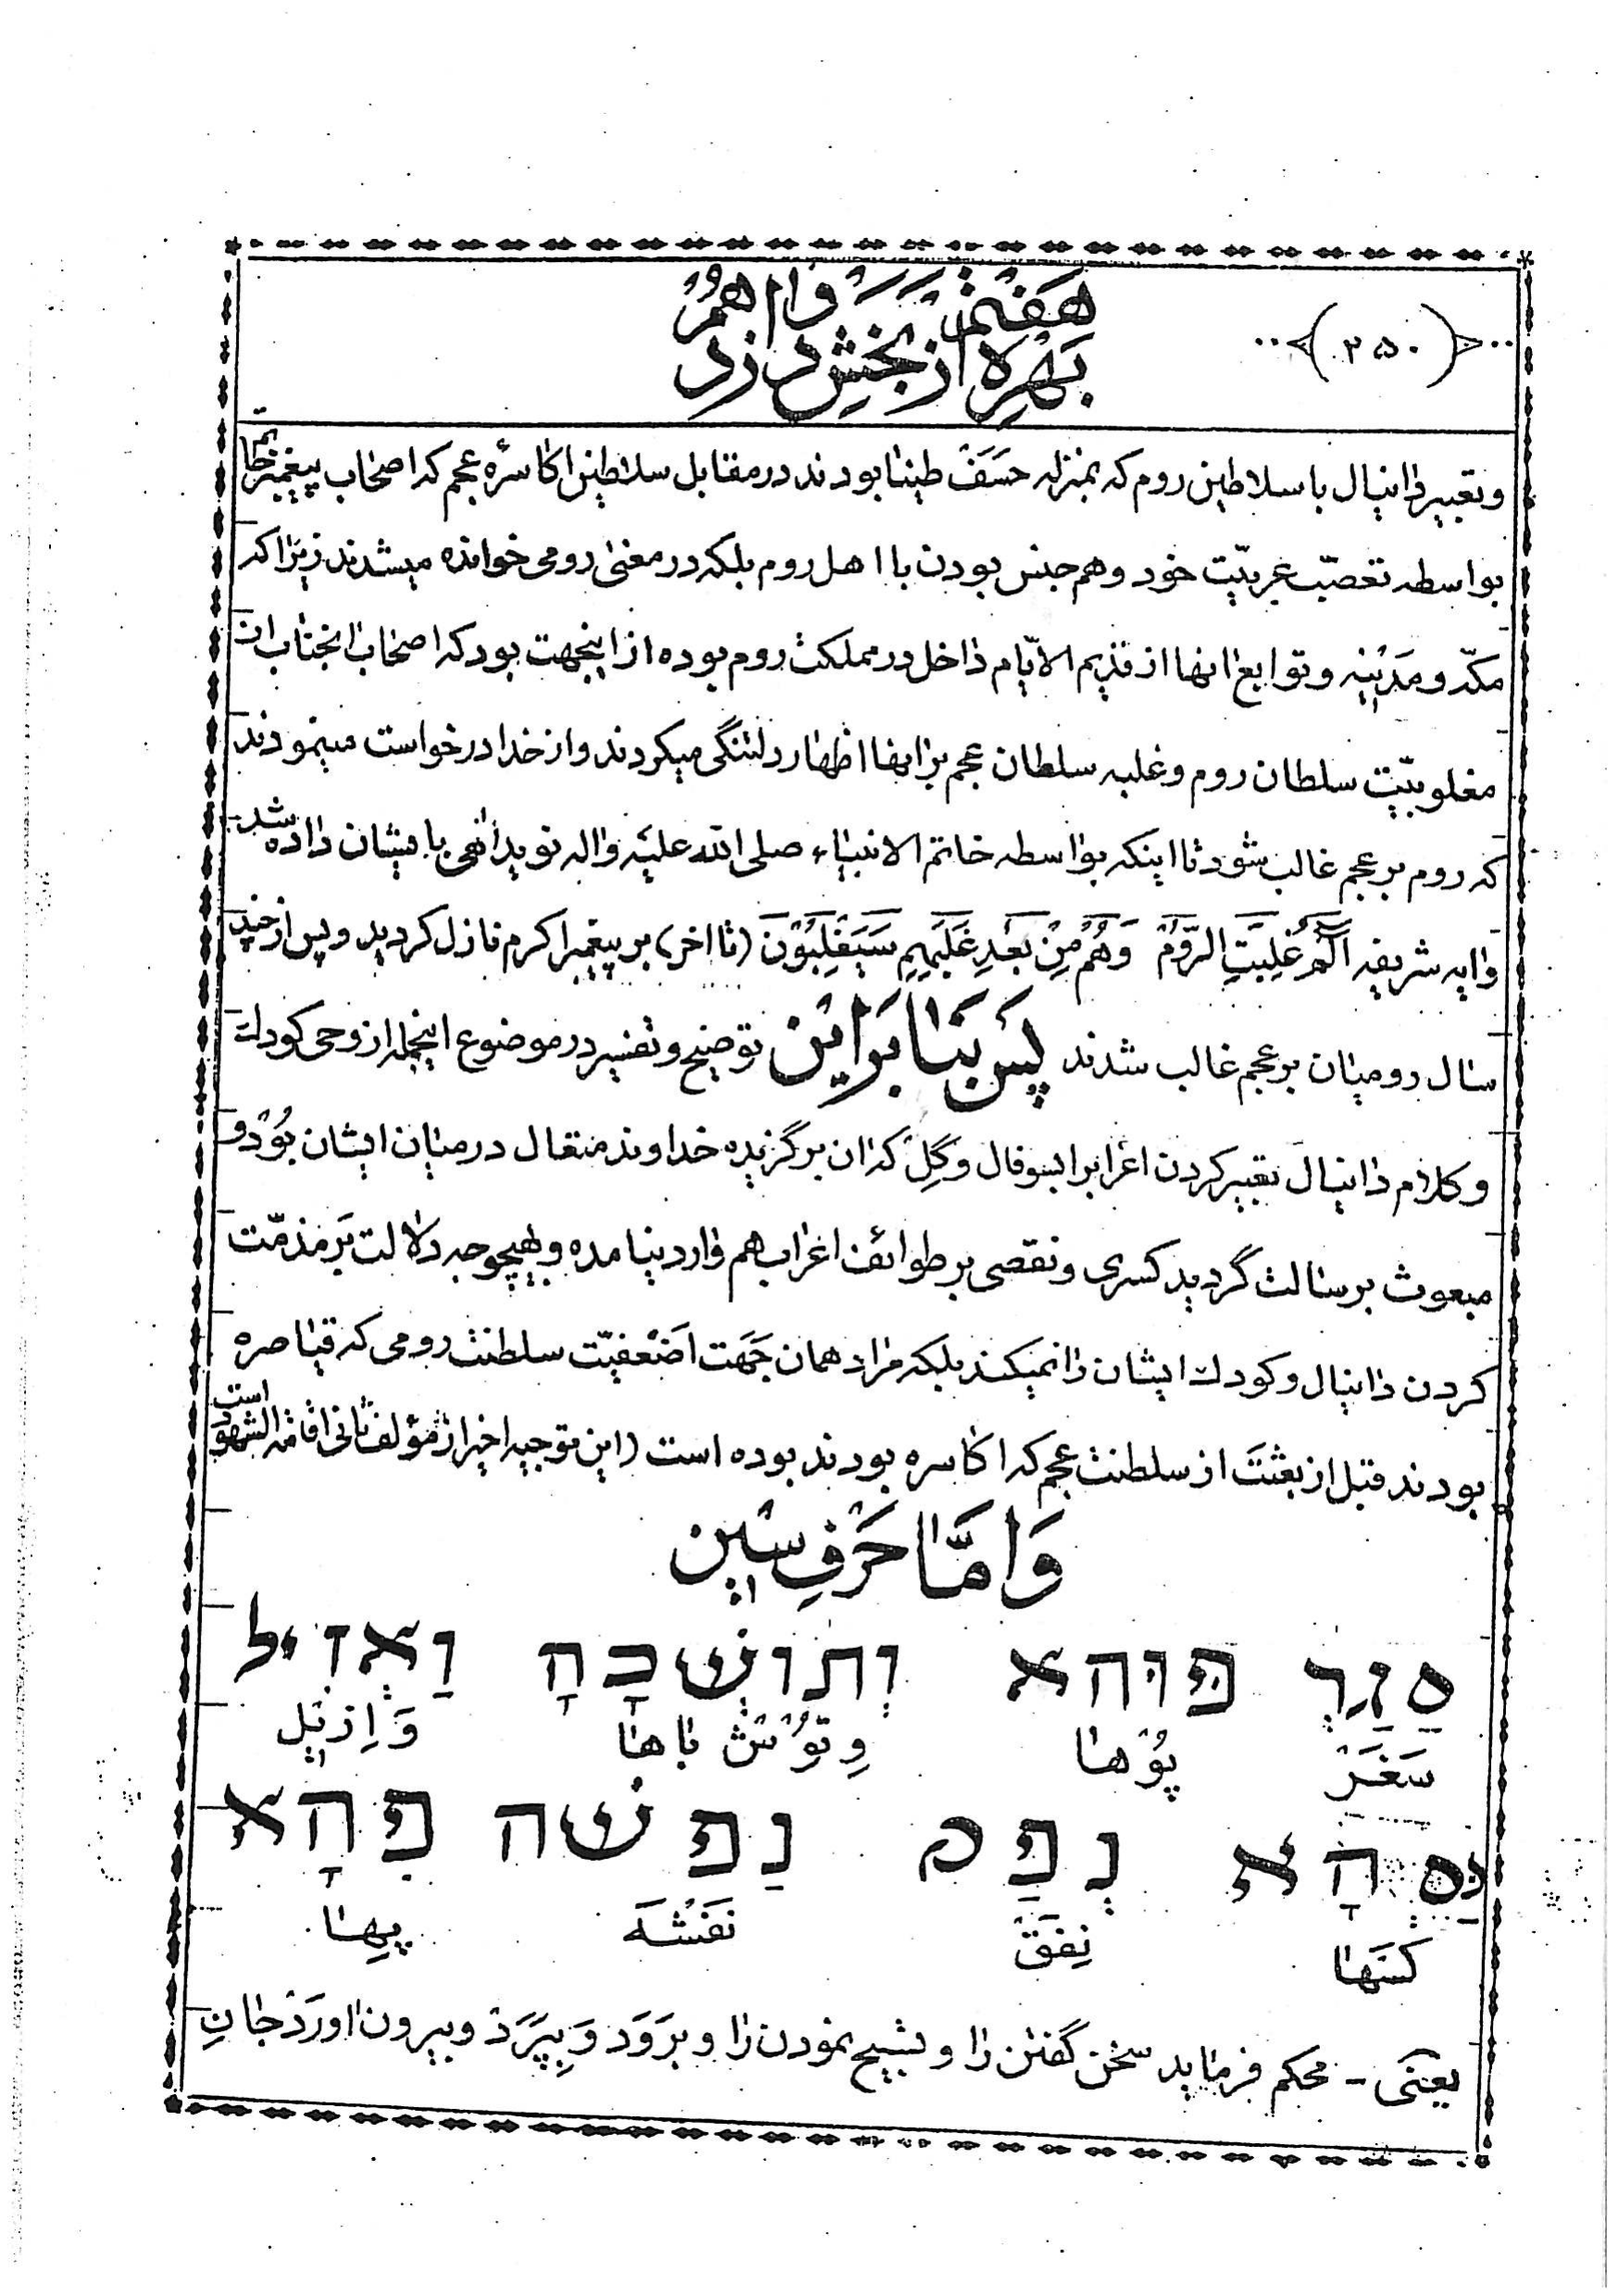 (۲۵۰)
هَفتُم وَ اَهَمّ
بَهرِه از بَخشِ دَر رَد
و تعبیر دانیال با سلاطین روم که بمنزله حَسَفْ طینا بودند در مقابل سلاطین اکاسره عجم که اصحاب پیغمبر خاتم
بواسطه تعصّب عربیّت خود و هم جنس بودن با اهل روم بلکه در معنی رومی خوانده میشدند زیرا که
مکّه و مَدینه و توابع انها از قدیم الایّام داخل در مملکت روم بوده از اینجهت بود که اصحاب انجناب از
مغلوبیّت سلطان روم و غلبه سلطان عجم برانها اظهار دلتنگی میکردند و از خدا درخواست مینمودند
که روم بر عجم غالب شود تا اینکه بواسطه خاتم الانبیاء صلی الله علیه واله نوید الهی بایشان داده شد
وایه شریفه الٓمٓ غُلِبَتِ الرّوُمُ وَهُم مِنْ بَعْدِ غَلَبِهِم سَیَغْلِبُوْنَ (تا اخر) بر پیغمبر اکرم نازل کردید و پس از چند
سال رومیان بر عجم غالب شدند پَس بَنابَراین توضیح و تفسیر در موضوع اینجمله از وحی کودک
و کلام دانیال تعبیر کردن اعراب را بسوفال و گِل که ان برگزیده خداوند متعال در میان ایشان بُوْد و
مبعوث برسالت گردید کسری و نقصی بر طوائف اعراب هم وارد نیامده و بهیچوجه دلالت بَر مذمّت
کردن دانیال و کودک ایشان را نمیکند بلکه مراد همان جَهَت اَضْعَفیّت سلطنت رومی که قیاصره
بودند قبل از بعثت از سلطنت عجم که اکاسره بودند بوده است (این توجیه اخیر از مؤلف ثانی اقامة الشهود است
وَ اَمَّا حَرفِ سین
סַגַר פּוּהא וְתוּשׁבָּהָ וַאְזִיל
سَغَرْ پُوْها وِتوُشْ باها وَ اِزیٖل
יַסְהָא נְפַּס נַפשה פִּהָא
کَسَها نِفَقْ نَفَشْهَ پِها
یعنی - محکم فرماید سخن گفتن را و تسبیح نمودن را و برَوَد وَ بِپَرَدْ و بیرون اورَدْ جانِ